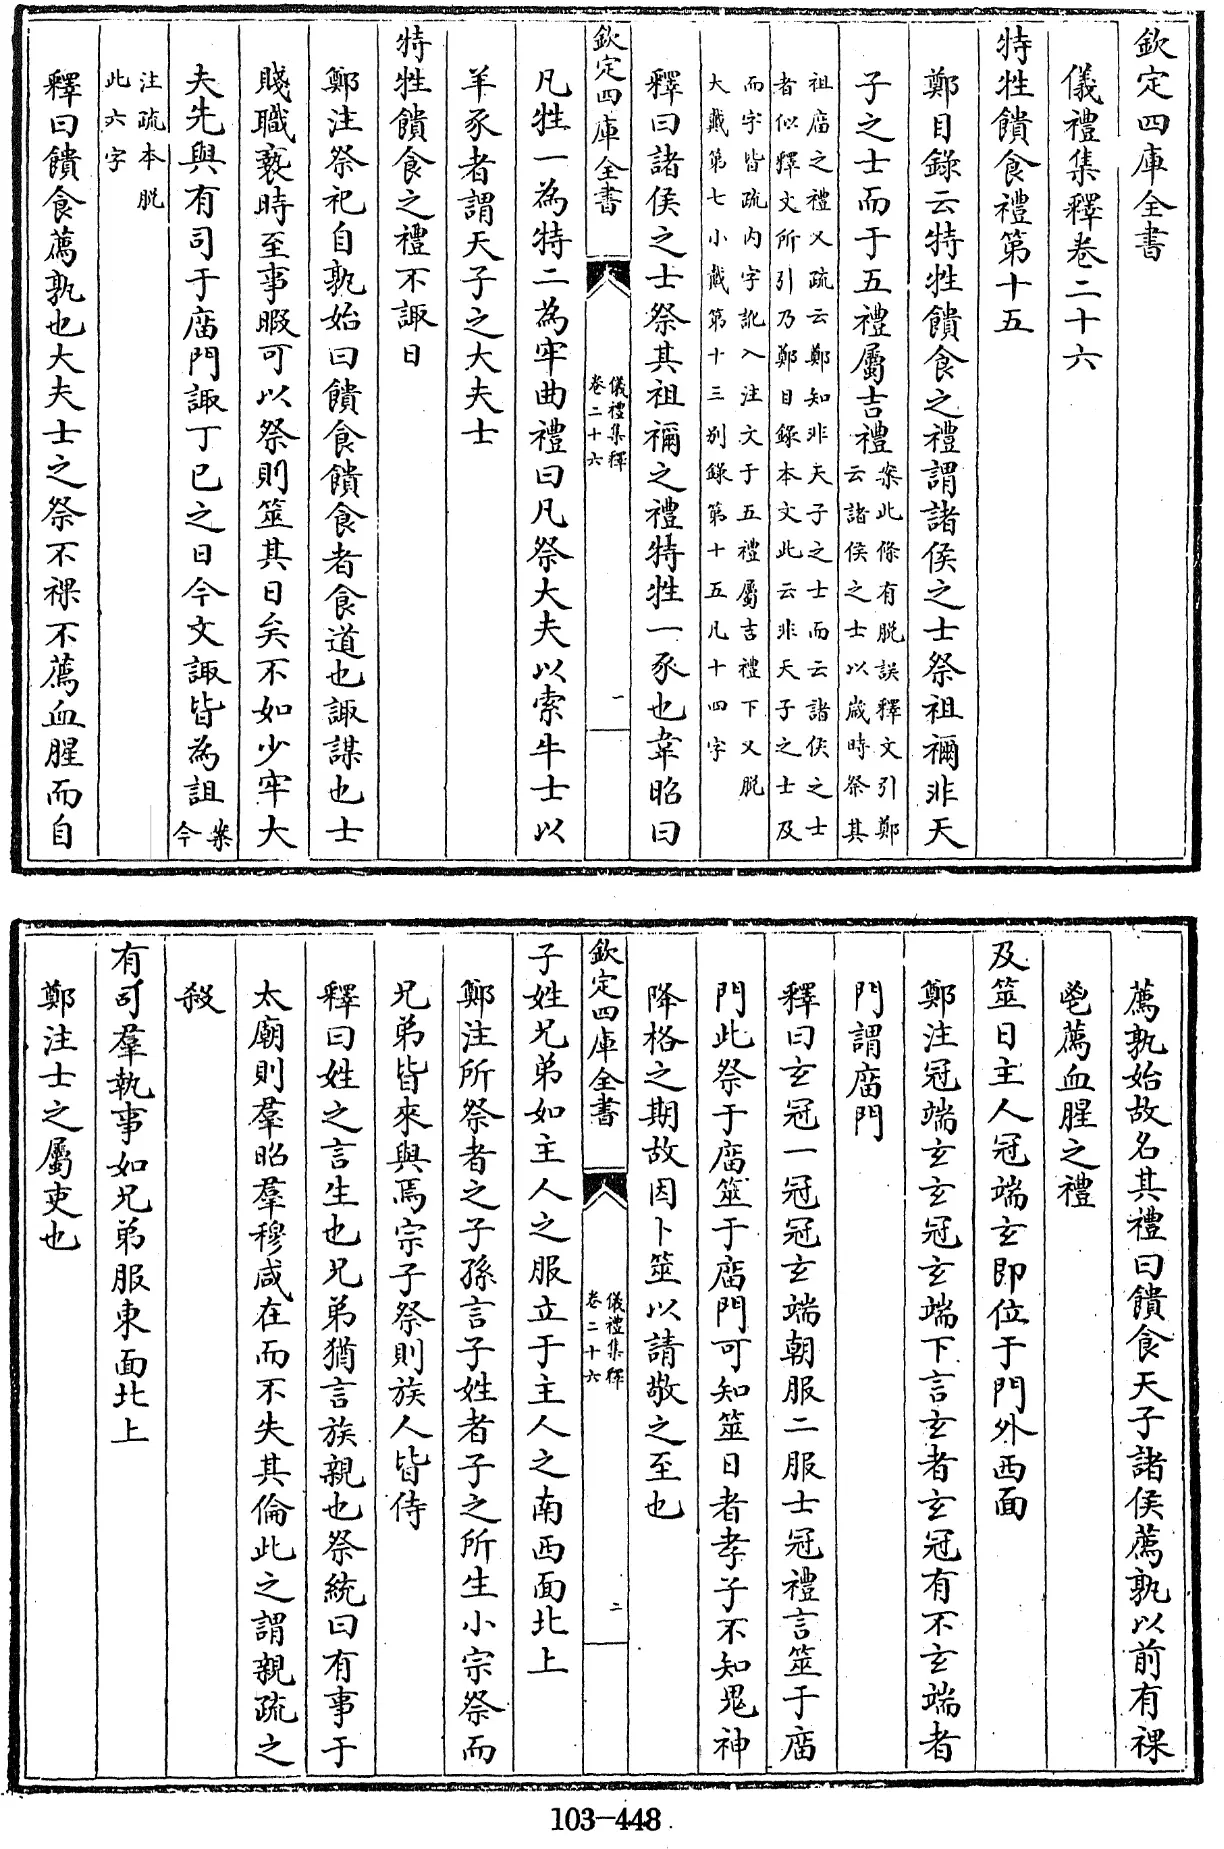 欽定四庫全書
儀禮集釋卷二十六
特牲饋食禮第十五
鄭目錄云特牲饋食之禮謂諸侯之士祭祖禰非天
子之士而于五禮屬吉禮案此條有脱誤釋文引鄭云諸侯之士以歲時祭其
祖廟之禮又疏云鄭知非天子之士而云諸侯之士
者似釋文所引乃鄭目錄本文此云非天子之士及
而字皆疏内字訛入注文于五禮屬吉禮下又脱
大戴第七小戴第十三别錄第十五凡十四字
釋曰諸侯之士祭其祖禰之禮特牲一豕也韋昭曰
欽定四庫全書
儀禮集釋
卷二十六
一
凡牲一為特二為牢曲禮曰凡祭大夫以索牛士以
羊豕者謂天子之大夫士
特牲饋食之禮不諏日
鄭注祭祀自孰始曰饋食饋食者食道也諏謀也士
賤職褻時至事暇可以祭則筮其日矣不如少牢大
夫先與有司于廟門諏丁已之日今文諏皆為詛案今
注疏本脱
此六字
釋曰饋食薦孰也大夫士之祭不祼不薦血腥而自
薦孰始故名其禮曰饋食天子諸侯薦孰以前有祼
鬯薦血腥之禮
及筮日主人冠端玄即位于門外西面
鄭注冠端玄玄冠玄端下言玄者玄冠有不玄端者
門謂廟門
釋曰玄冠一冠冠玄端朝服二服士冠禮言筮于廟
門此祭于廟筮于廟門可知筮日者孝子不知鬼神
降格之期故因卜筮以請敬之至也
欽定四庫全書
儀禮集釋
卷二十六
二
子姓兄弟如主人之服立于主人之南西面北上
鄭注所祭者之子孫言子姓者子之所生小宗祭而
兄弟皆來與焉宗子祭則族人皆侍
釋曰姓之言生也兄弟猶言族親也祭統曰有事于
太廟則羣昭羣穆咸在而不失其倫此之謂親疏之
殺
有司羣執事如兄弟服東面北上
鄭注士之屬吏也
103-448